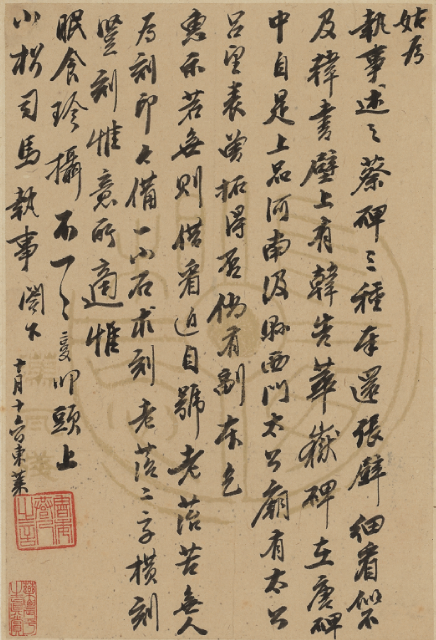 姑為
執事述之蔡碑三種奉還張壁細看似不
及韓書壁上有韓告華嶽碑在唐碑
中自是上品河南汲縣西門太公廟有太公
呂望表曾拓得否倘有副本乞
惠示若無則借看近自號老落苦無人
為刻印今備一小石求刻老落二字橫刻
豎刻惟意所適惟
眠食珍攝不一之変叩頭上
小松司馬執事閣下 十月十六日東萊